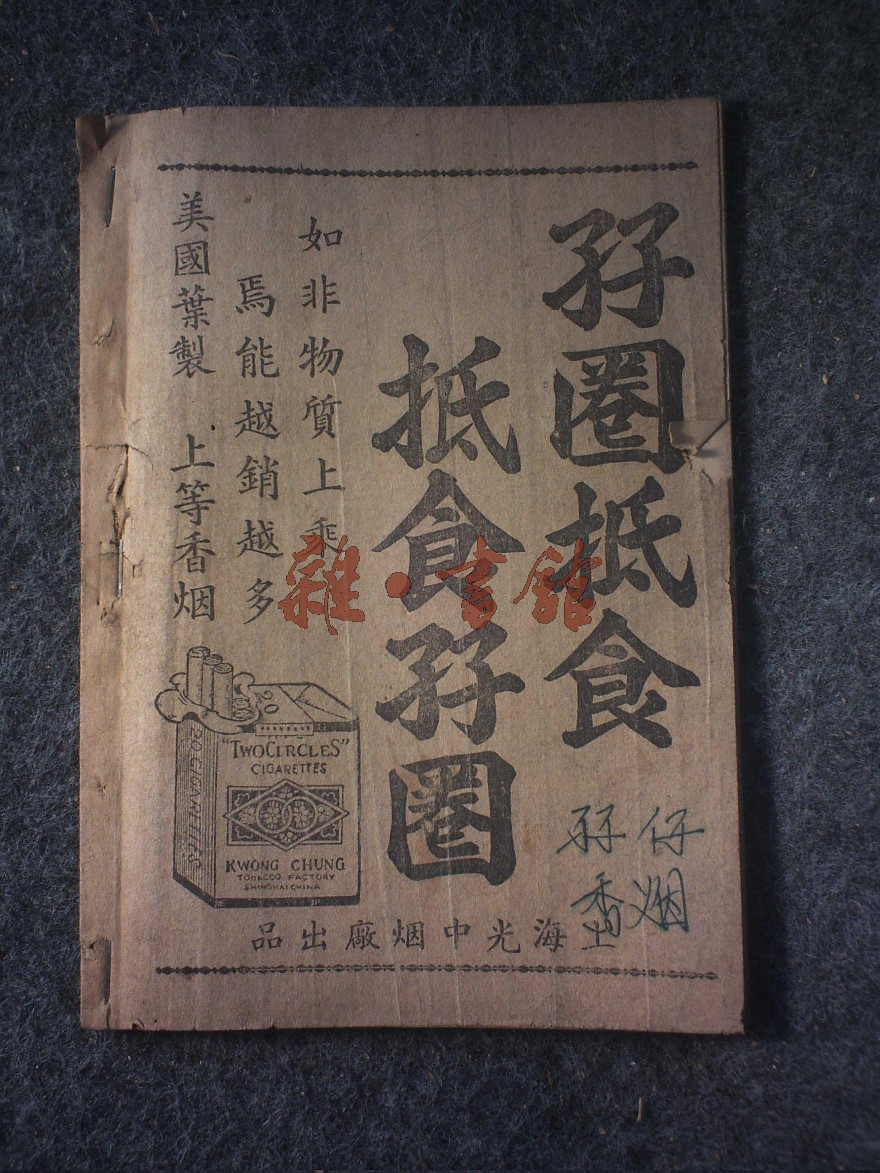 孖圈抵食
抵食孖圈
如非物質上乘
焉能越銷越多
美國葉製 上等香烟
"TWO CIRCLES"
CIGARETTES
20 CIGARETTES
KWONG CHUNG
TOBACCO FACTORY
SHANGHAI CHINA
上海光中烟廠出品
孖仔
香烟
雜·書館